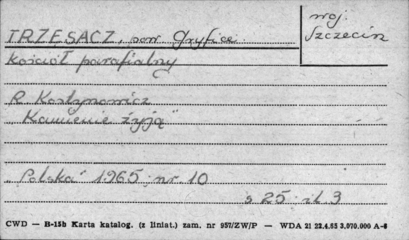 TRZESACZ, pow. Gryfice
woj.
Szczecin
Kościół parafialny
R. Kostynowicz
"Kamienie żyją"
"Polska" 1965 nr. 10
s 25 il. 3
CWD — B-15b Karta katalog. (z liniat.) zam. nr 957/ZW/P — WDA 21 22.4.63 3.070.000 A-6